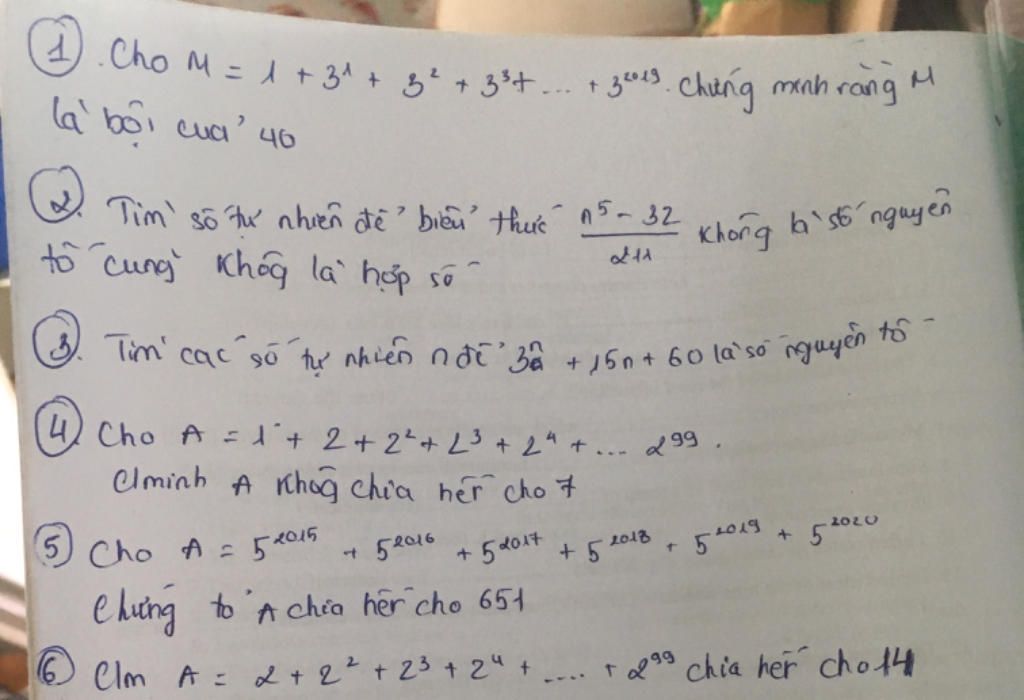 ① . Cho M = 1 + 3¹ + 3² + 3³ + ... + 3²⁰¹⁹. Chứng minh rằng M
là bội của 40
②. Tìm số tự nhiên để biểu thức (n⁵ - 32)/211 không là số nguyên
tố cũng không là hợp số
③. Tìm các số tự nhiên n để 3ⁿ + 15n + 60 là số nguyên tố
④ Cho A = 1 + 2 + 2² + 2³ + 2⁴ + ... 2⁹⁹.
C/minh A không chia hết cho 7
⑤ Cho A = 5²⁰¹⁵ + 5²⁰¹⁶ + 5²⁰¹⁷ + 5²⁰¹⁸ + 5²⁰¹⁹ + 5²⁰²⁰
Chứng tỏ A chia hết cho 651
⑥ C/m A = 2 + 2² + 2³ + 2⁴ + .... + 2⁹⁹ chia hết cho 14